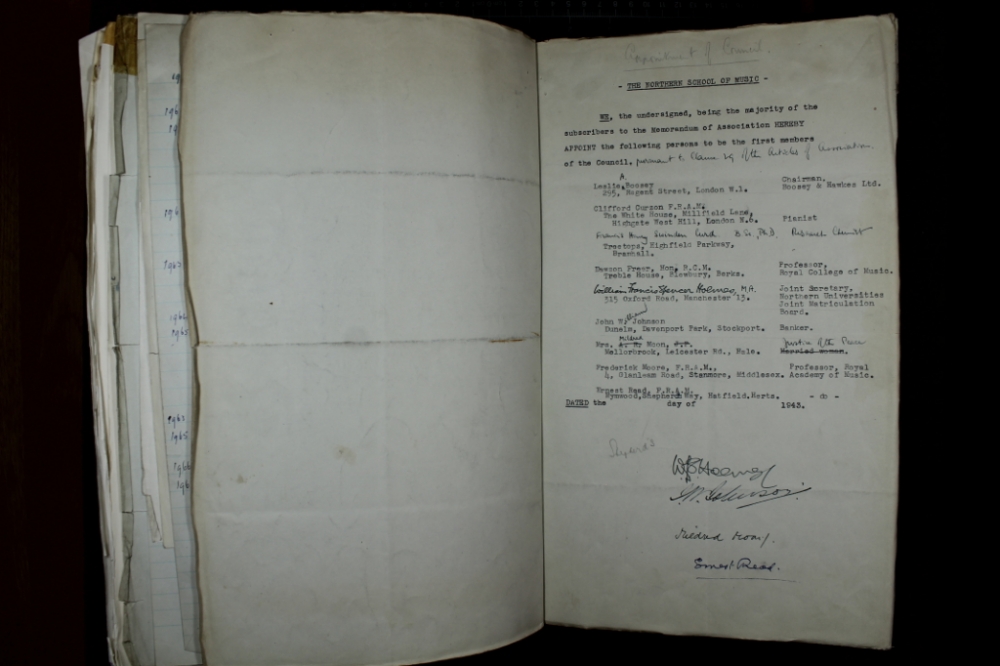 Appointment of Council.
- THE NORTHERN SCHOOL OF MUSIC -
WE, the undersigned, being the majority of the
subscribers to the Memorandum of Association HEREBY
APPOINT the following persons to be the first members
of the Council. pursuant to Clause 29 of the Articles of Association.
A.
Leslie, Boosey Chairman,
295, Regent Street, London W.1. Boosey & Hawkes Ltd.
Clifford Curzon F.R.A.M.
The White House, Millfield Lane,
Highgate West Hill, London N.6. Pianist
Francis Henry Swindon Curd. B.Sc., Ph.D. Research Chemist
Treetops, Highfield Parkway,
Bramhall.
Dawson Freer, Hon. R.C.M. Professor,
Treble House, Blewbury, Berks. Royal College of Music.
William Francis Spencer Holmes, M.A. Joint Secretary,
315 Oxford Road, Manchester 13. Northern Universities
Joint Matriculation
Board.
John W. Johnson
Dunelm, Davenport Park, Stockport. Banker.
Mildred
Mrs. Moon, J.P. Justice of the Peace
Mellorbrook, Leicester Rd., Hale. Married woman.
Frederick Moore, F.R.A.M., Professor, Royal
4, Glanleam Road, Stanmore, Middlesex. Academy of Music.
Ernest Read, F.R.A.M.
Wynwood, Stephens Way, Hatfield, Herts. - do -
DATED the day of 1943.
Signed
W.F.S. Holmes
J.W. Johnson.
Mildred Moon.
Ernest Read.